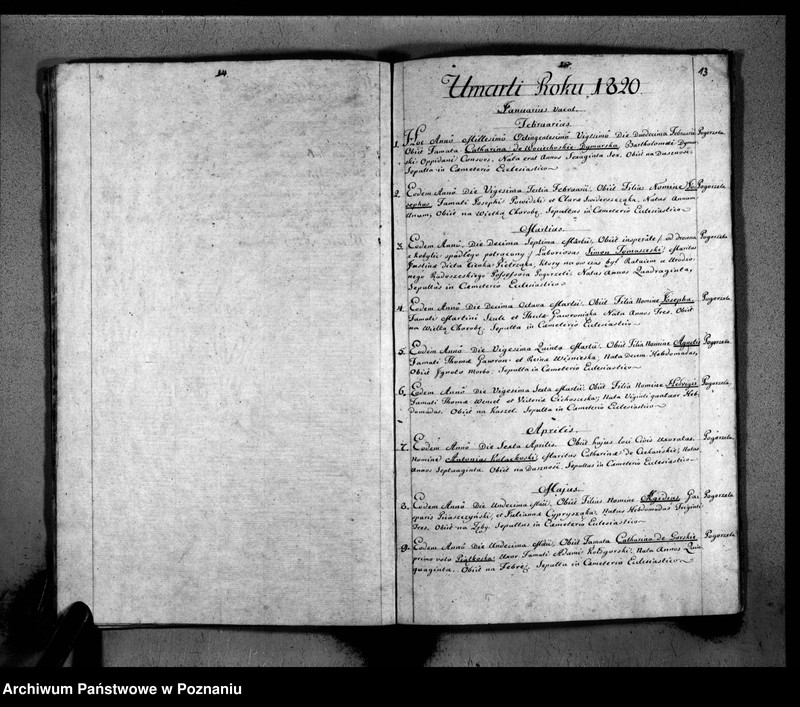 13
Umarli Roku 1820
Januarius vacat.
Februarius.
1. Hoc Annô Millesimô Octingentesimô Vigesimô Die Duodecima Februarii Pogorzela
Obiit Famata Catharina de Wociechoskie Dymarska, Bartholomæi Dymar-
ski Oppidani Consors, Nata erat Annos Sexaginta Tres. Obiit na Dusznosc.
Sepulta in Cæmeterio Ecclesiastico
2. Eodem Annô Die Vigesima Tertia Februarii. Obiit Filius Nomine Jo- Pogorzela
sephus, Famati Josephi Powidzki et Clara Swiderszcząka. Natus Annum
Unum, Obiit na Wielką Chorobę. Sepultus in Cæmeterio Ecclesiastico
Martius.
3. Eodem Annô. Die Decima Septima Martii, Obiit insperate /: od drzewa Pogorzela
z kobylic spadłego potrącony :/ Laboriosus Simon Tomaszeski, Maritus
Justina dicta Pietrząka, który na ow czas był Rataiem u Urodzo-
nego Radoszeskiego Possessora Pogorzeli. Natus Annos Quadraginta,
Sepultus in Cæmeterio Ecclesiastico
4. Eodem Annô Die Decima Octava Martii. Obiit Filia Nomine Josepha, Pogorzela
Famati Martini et Thecla Gawroniąka Nata Annos Tres. Obiit
na Wielką Chorobę. Sepulta in Cæmeterio Ecclesiastico
5. Eodem Annô Die Vigesima Quinta Martii. Obiit Filia Nomine Agnetis Pogorzela
Famati Thoma Gawron et Regina Wiśnieska, Nata Decem Hebdomadas,
Obiit Ignoto Morbo. Sepulta in Cæmeterio Ecclesiastico
6. Eodem Annô Die Vigesima Sexta Martii Obiit Filia Nomine Hedvigis Pogorzela
Famati Thoma Wencel et Victoria Cichoszeska; Nata Viginti quatuor Heb-
domadas. Obiit na Kaszel. Sepulta in Cæmeterio Ecclesiastico
Aprilis.
7. Eodem Annô Die Sexta Aprilis. Obiit hujus loci Civis Uxoratus, Pogorzela
Nomine Antonius Maritus Catharina de Cichańskie; Natus
Annos Septuaginta. Obiit na Dusznosc Sepultus in Cæmeterio Ecclesiastico
Majus.
8. Eodem Annô Die Undecima Maii, Obiit Filius Nomine Gas- Pogorzela
paris Piaszczyński, et Julianna Cyprysząka, Natus Hebdomadas Triginta
Tres. Obiit na Zęby. Sepultus in Cæmeterio Ecclesiastico
9. Eodem Annô Die Undecima Maii, Obiit Famata Catharina de Gorskie Pogorzela
primo voto Piątkoska, Uxor Famati Adami Kołzgurski, Nata Annos Quin-
quaginta. Obiit na Febrę. Sepulta in Cæmeterio Ecclesiastico
Archiwum Państwowe w Poznaniu